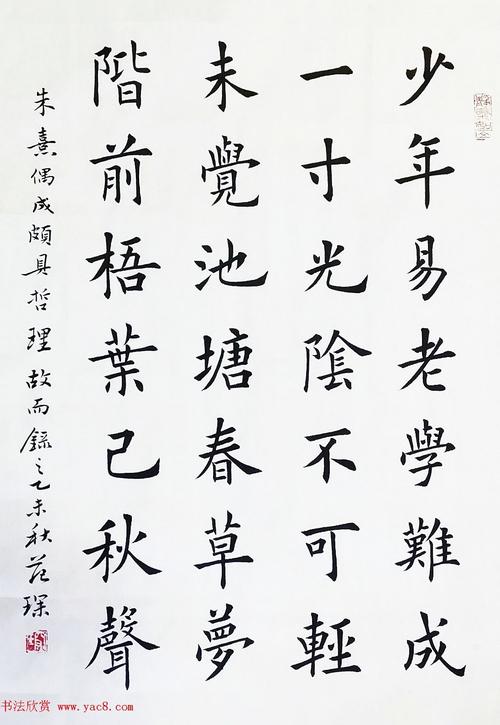 少年易老學難成
一寸光陰不可輕
未覺池塘春草夢
階前梧葉已秋聲
朱熹偶成頗具哲理故而錄之乙未秋范琛
书法欣赏 www.yac8.com